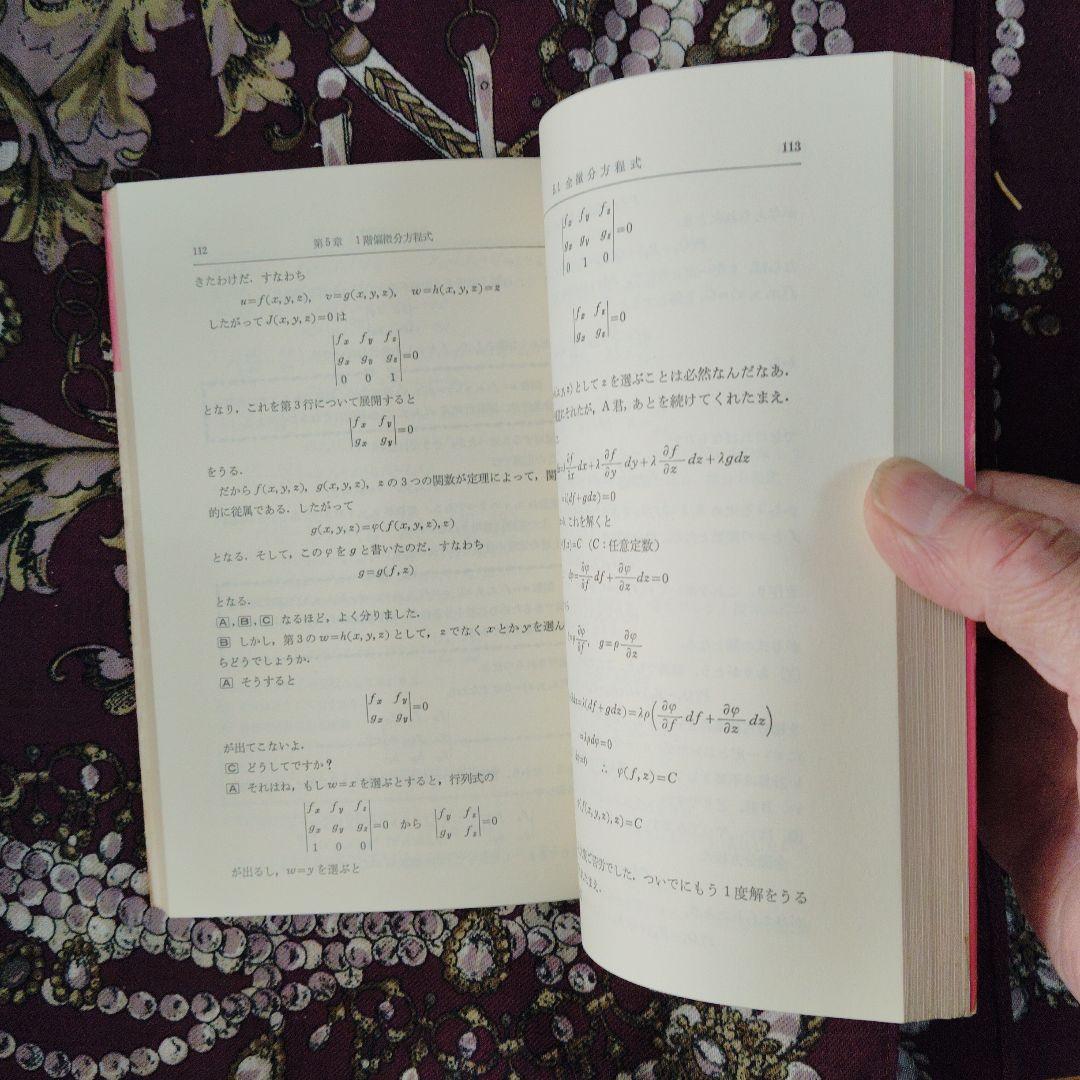 112
第5章 1階偏微分方程式
きたわけだ．すなわち
u=f(x, y, z), v=g(x, y, z), w=h(x, y, z)=z
したがって J(x, y, z)=0 は
|fx fy fz|
|gx gy gz|=0
|0 0 1|
となり，これを第3行について展開すると
|fx fy|
|gx gy|=0
をうる．
だから f(x, y, z), g(x, y, z), z の3つの関数が定理によって，関
的に従属である．したがって
g(x, y, z)=φ(f(x, y, z), z)
となる．そして，この φ を g と書いたのだ．すなわち
g=g(f, z)
となる．
A, B, C なるほど，よく分りました．
B しかし，第3の w=h(x, y, z) として，z でなく x とか y を選ん
らどうでしょうか．
A そうすると
|fx fy|
|gx gy|=0
が出てこないよ．
C どうしてですか？
A それはね，もし w=x を選ぶとすると，行列式の
|fx fy fz|
|gx gy gz|=0 から |fy fz|
|1 0 0| |gy fz|=0
が出るし，w=y を選ぶと
5.1 全微分方程式
113
|fx fy fz|
|gx gy gz|=0
|0 1 0|
|fx fz|
|gx gz|=0
として z を選ぶことは必然なんだなあ．
にそれたが，A君，あとを続けてくれたまえ．
∂f/∂x dx+λ ∂f/∂y dy+λ ∂f/∂z dz+λgdz
(df+gdz)=0
これを解くと
=C (C：任意定数)
dφ=∂φ/∂f df+∂φ/∂z dz=0
∂φ/∂f, g=ρ ∂φ/∂z
=λ(df+gdz)=λρ(∂φ/∂f df+∂φ/∂z dz)
=λρdφ=0
∴ φ(f, z)=C
f(x, y, z), z)=C
ご苦労でした．ついでにもう1度解をうる
まえ．